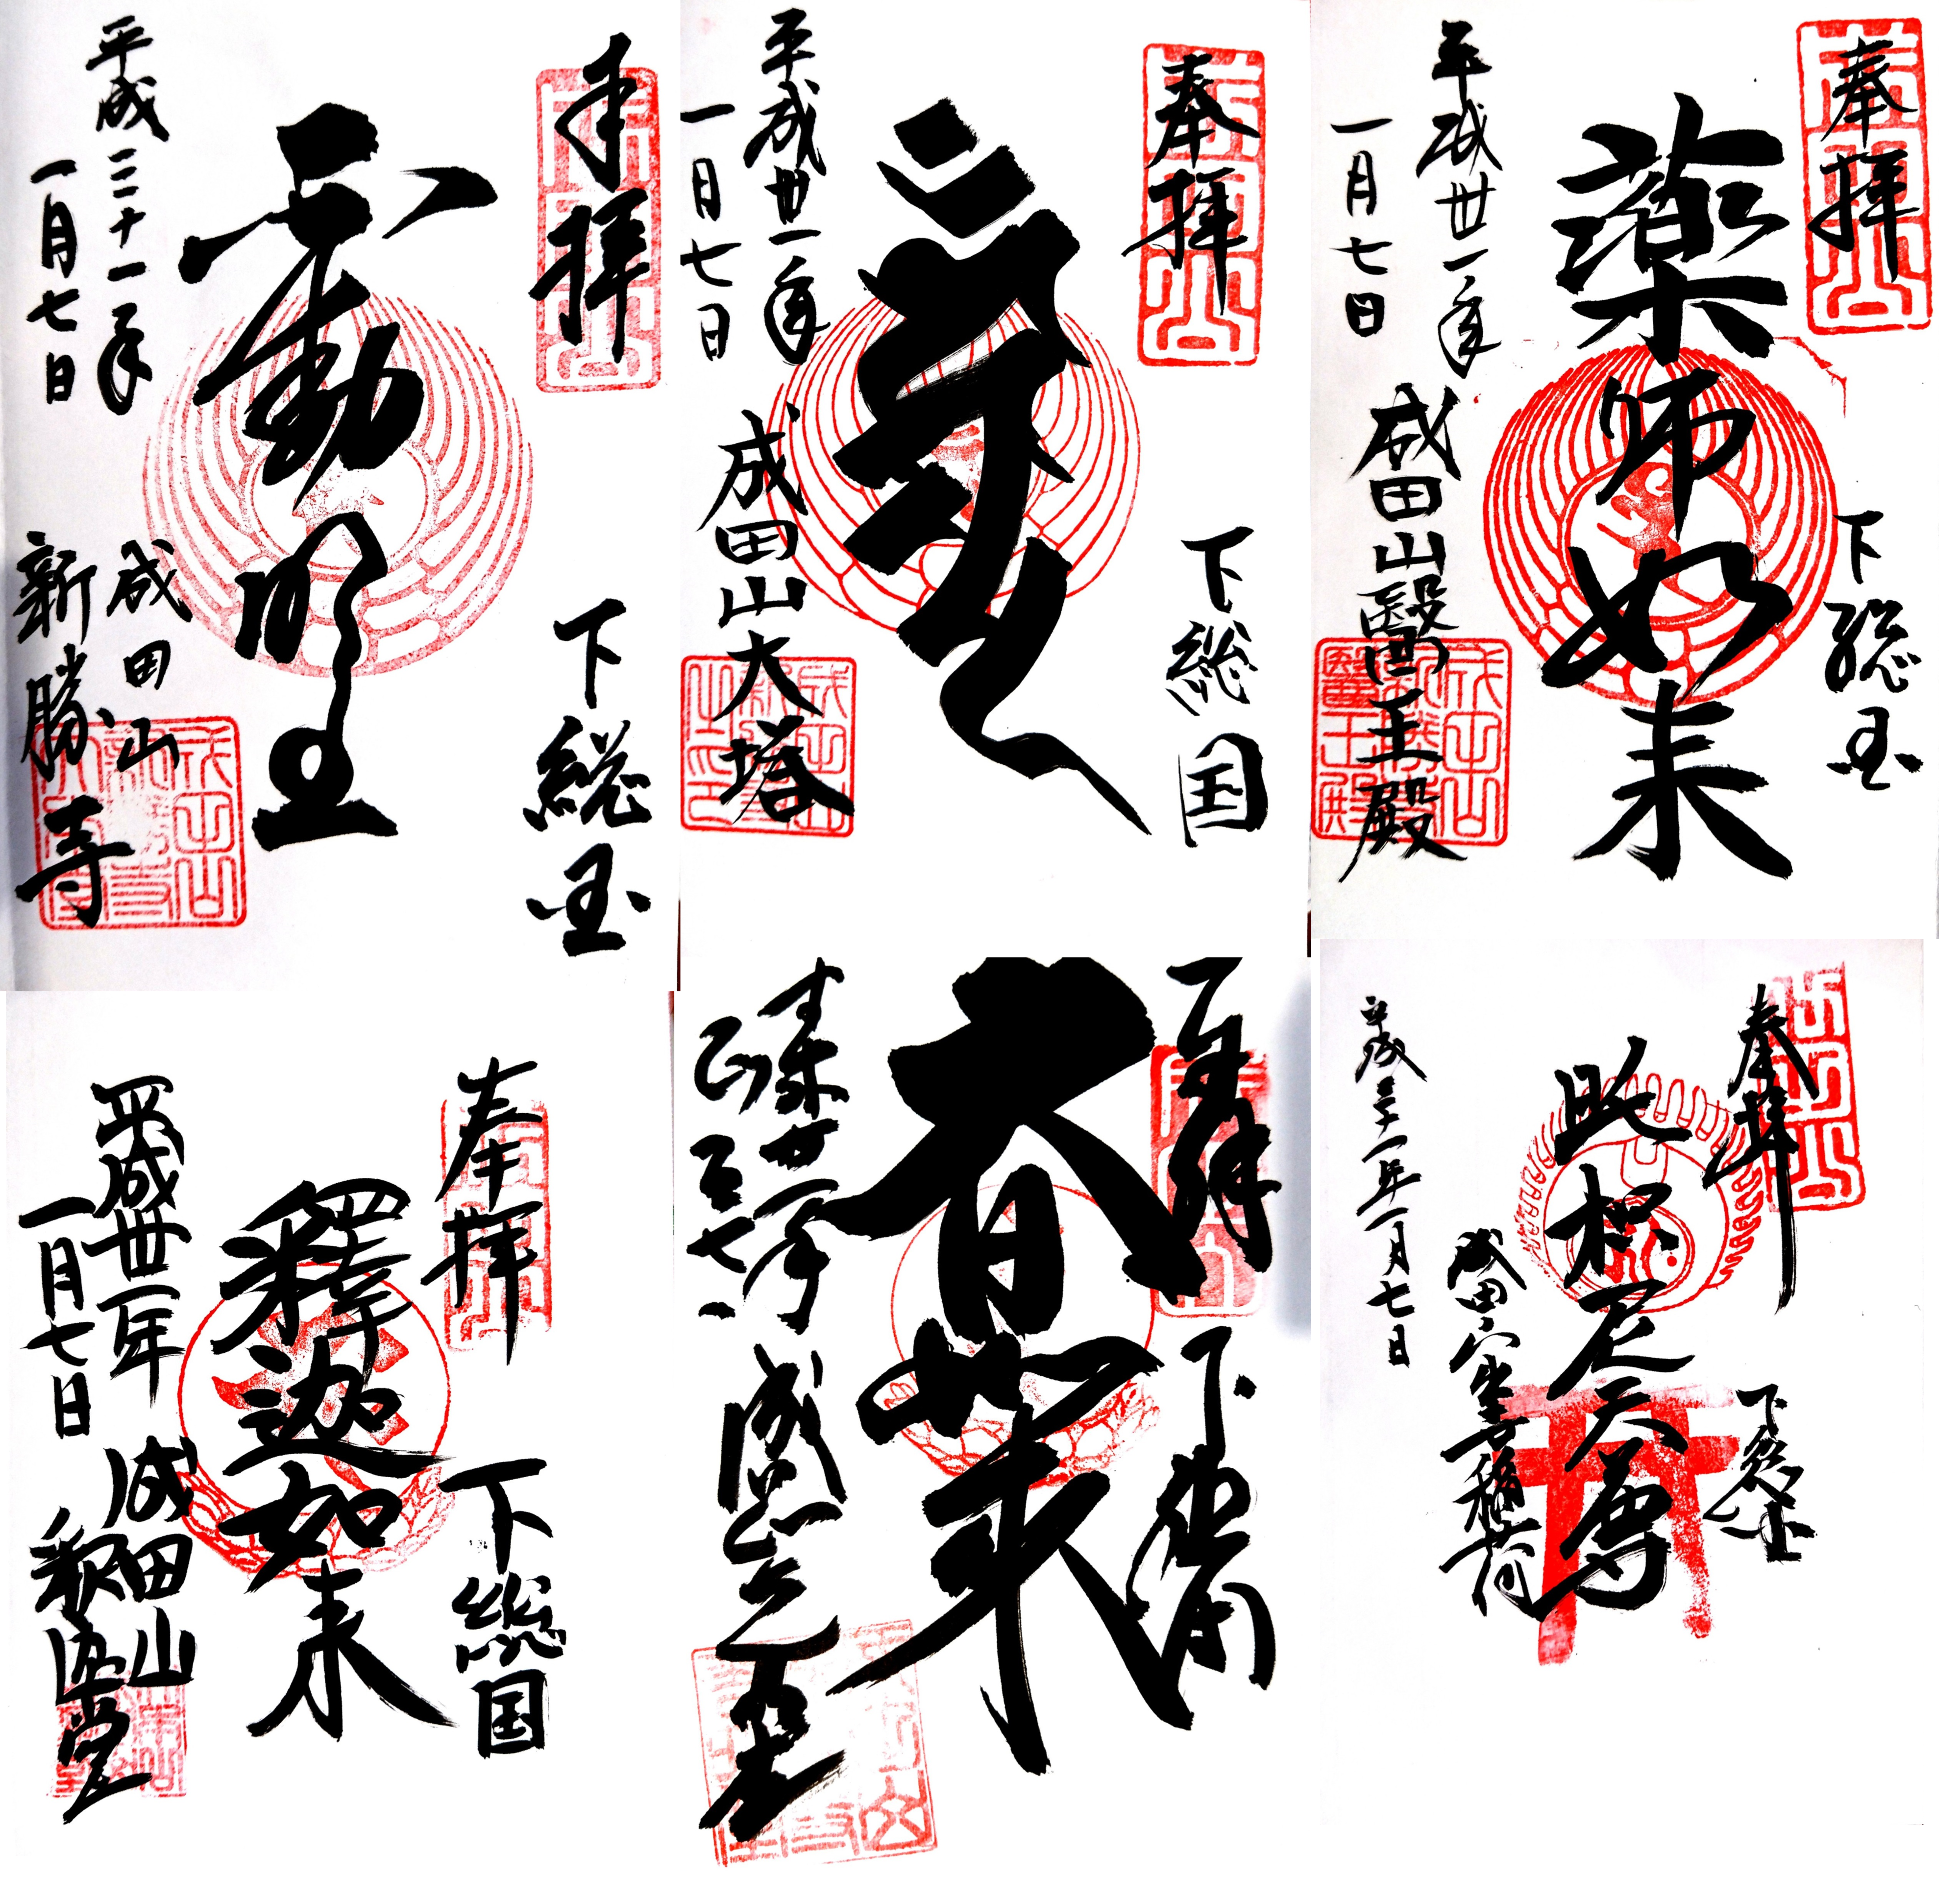 奉拝
下総国
不動明王
平成三十一年
一月七日
成田山
新勝寺
奉拝
下総国
平成卅一年
一月七日
成田山大塔
奉拝
下総国
薬師如来
平成卅一年
一月七日
成田山醫王殿
奉拝
下総国
釋迦如来
平成卅一年
一月七日
成田山
釈迦堂
大日如来
奉拝
下総国
吒枳尼天尊
平成三十一年一月七日
成田山出世稲荷